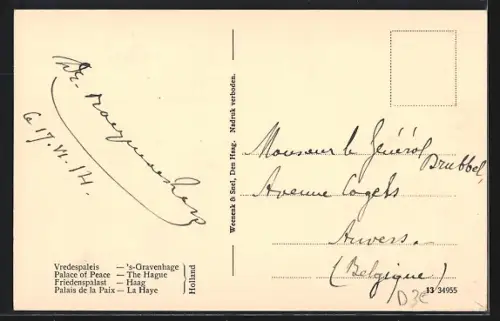 le 17. VI. 14.
Monsieur le Général
Avenue Cogels
Anvers.
(Belgique)
Weenenk & Snel, Den Haag. Nadruk verboden.
Vredespaleis — 's-Gravenhage
Palace of Peace — The Hague
Friedenspalast — Haag
Palais de la Paix — La Haye
Holland
13 34955